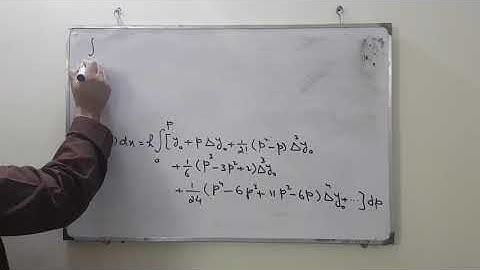 ∫
)dx = h∫₀ᵖ[y₀ + pΔy₀ + 1/2! (p² - p)Δ³y₀
+ 1/6 (p³ - 3p² + 2)Δ³y₀
+ 1/24 (p⁴ - 6p³ + 11p² - 6p)Δ⁴y₀ + ...]dp